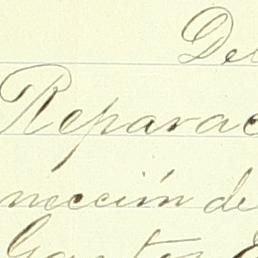 De
Reparac
nección de
Gastos